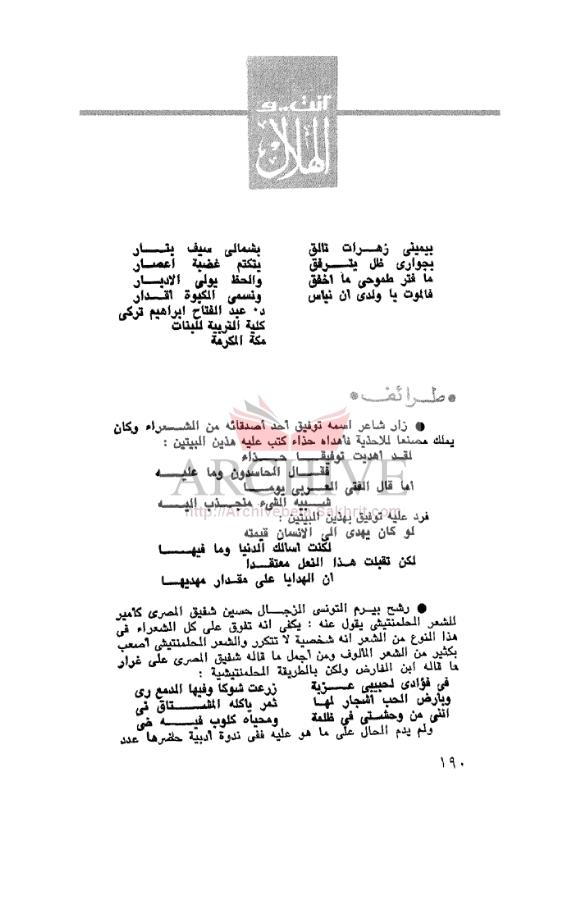 أنت.. و
الهلال
بيمينى زهرات تالق بشمالى سيف بتار
بجوارى ظل يترفق يتكتم غضبة اعصار
ما فتر طموحى ما اخفق والحظ يولى الادبار
فالموت يا ولدى ان نياس ونسمى الكبوة اقدار
د٠ عبد الفتاح ابراهيم تركى
كلية التربية للبنات
مكة المكرمة
* طرائف *
● زار شاعر اسمه توفيق أحد أصدقائه من الشعراء وكان
يملك مصنعا للاحذية فأهداه حذاء كتب عليه هذين البيتين :
لقد أهديت توفيقا حذاء
فقال الحاسدون وما عليه
أما قال الفتى العربى يوما
شبيه الشىء منجذب اليه
فرد عليه توفيق بهذين البيتين :
لو كان يهدى الى الانسان قيمته
لكنت أسألك الدنيا وما فيها
لكن تقبلت هذا النعل معتقدا
ان الهدايا على مقدار مهديها
● رشح بيرم التونسى الزجال حسين شفيق المصرى كأمير
للشعر الحلمنتيشى يقول عنه : يكفى انه تفوق على كل الشعراء فى
هذا النوع من الشعر انه شخصية لا تتكرر والشعر الحلمنتيشى أصعب
بكثير من الشعر المألوف ومن أجمل ما قاله شفيق المصرى على غرار
ما قاله ابن الفارض ولكن بالطريقة الحلمنتيشية :
فى فؤادى لحبيبى عزبة زرعت شوكا وفيها الدمع رى
وبارض الحب أشجار لها ثمر ياكله المشتاق نى
اننى من وحشتى فى ظلمة ومحياه كلوب فيه ضى
ولم يدم الحال على ما هو عليه ففى ندوة أدبية حضرها عدد
١٩٠
ARCHIVE
http://Archivebeta.Sakhrit.com